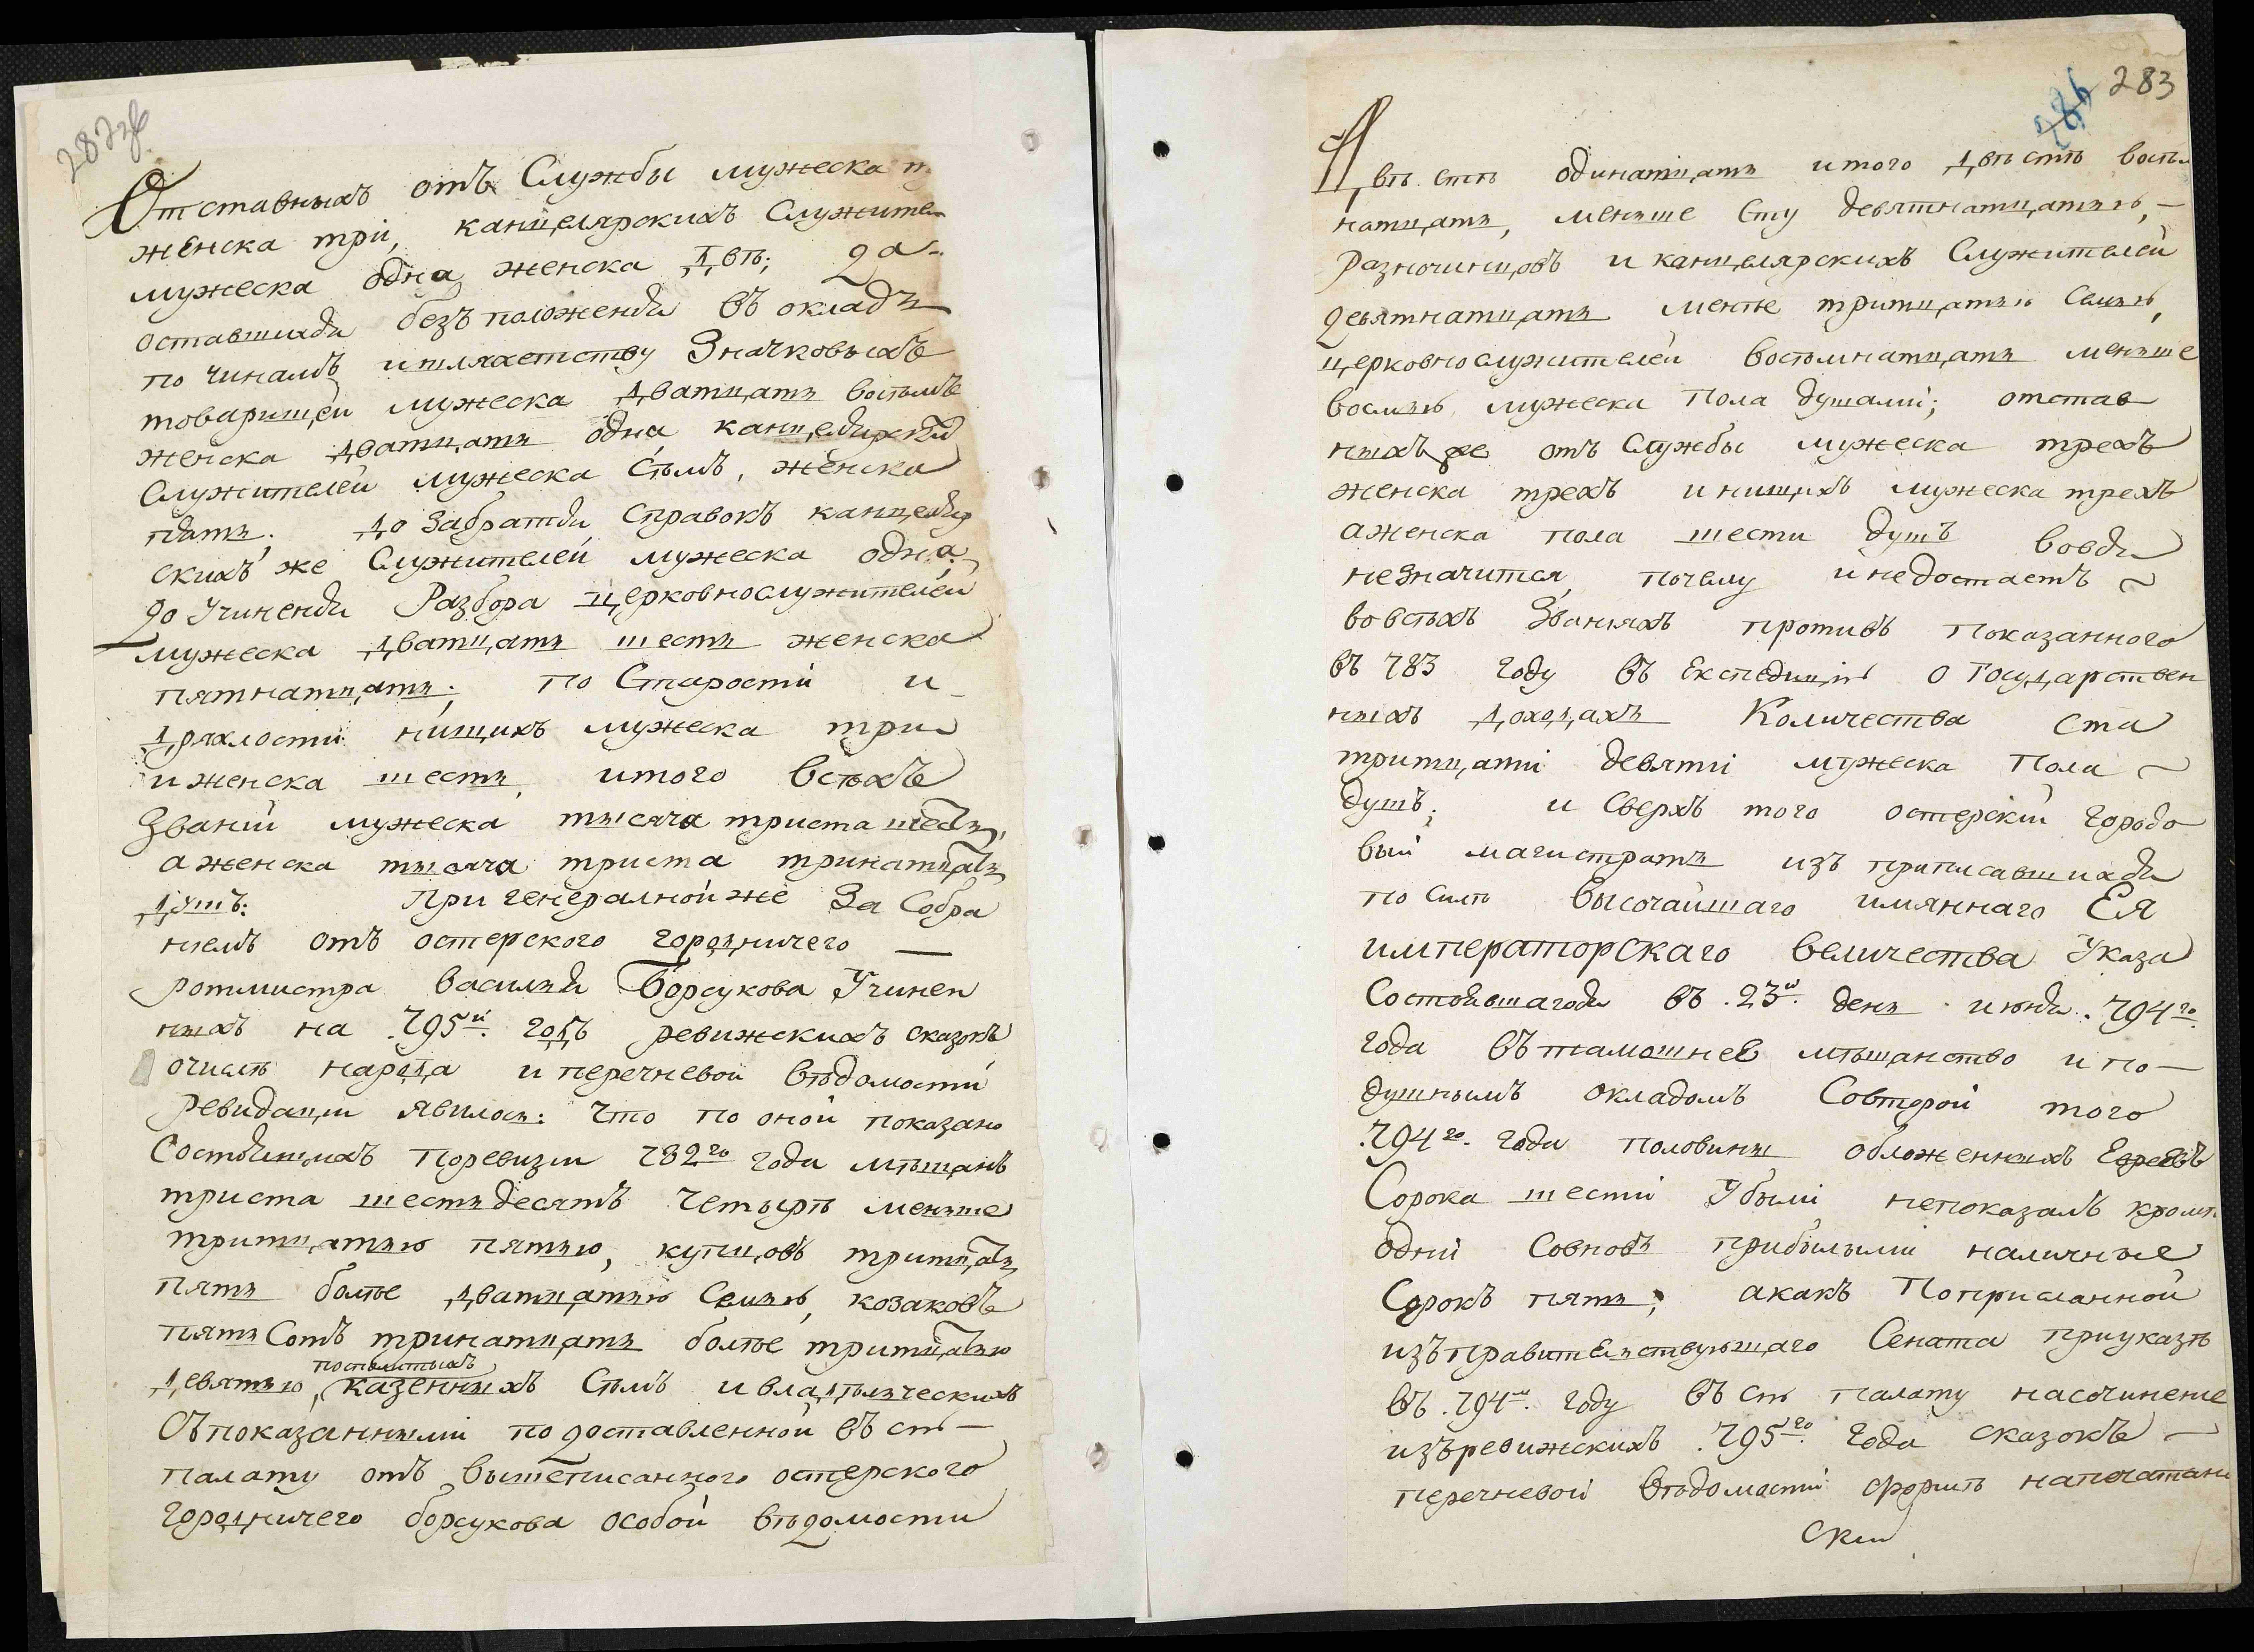 282 зв
Отставныхъ отъ Службы мужеска
женска три, канцелярскихъ Служите
мужеска одна женска двѣ; да
оставшихся безъ положенія въ окладъ
по чинамъ и шляхетству Значковыхъ
товарищей мужеска дватцать восѣмъ
женска дватцать одна, канцелярскихъ
Служителей мужеска Сѣмъ, женска
пять. до Забратія Справокъ канцеляр
скихъ же Служителей мужеска одна;
до Учиненія Разбора церковнослужителей
мужеска дватцать шесть женска
пятнатцать; по Старости и
дряхлости нищихъ мужеска три
и женска шесть, итого всѣхъ
Званій мужеска тысяча триста шесть,
а женска тысяча триста тринатцать
душъ: При генералной же За Собра
ніемъ отъ остерского городничего —
ротмистра Василья Борсукова Учинен
ныхъ на .795й. годъ ревижскихъ сказокъ
очислѣ народа и перечневой вѣдомости
ревизіи явилось: Что по оной показано
Состоящихъ Поревизіи 782го года мѣщанъ
триста шестьдесятъ Четырѣ меньше
тритцатью пятью, купцовъ тритцать
пять болѣе дватцатью Семью, козаковъ
пять Сотъ тринатцать болѣе тритцатью
девятью, казенныхъ Сѣмъ и владѣлческихъ
посполитыхъ
Съ показанными по доставленной въ сію —
палату отъ вышеписанного остерского
городничего борсукова особой вѣдомости
283
двѣ стѣ одинатцать итого двѣстѣ восѣм
натцать, меньше Сту девятнатцатью, —
Разночинцовъ и канцелярскихъ Служителей
девятнатцать менѣе тритцатью Семью,
церковнослужителей восѣмнатцать меньше
восмью мужеска Пола душами; отстав
ныхъ же отъ Службы мужеска трехъ
женска трехъ и нищихъ мужеска трехъ
а женска пола шести душъ вовся
незначится, почему и недостаетъ ~
вовсѣхъ Званіяхъ противъ Показанного
въ 783 году въ Експедиціи о Государствен
ныхъ доходахъ Количества ста
тритцати девяти мужеска Пола ~
душъ; и Сверхъ того остерскій городо
вый магистратъ изъ приписавшихся
по силѣ Высочайшаго имяннаго ЕЯ
императорскаго величества Указа
Состоявшагося въ .23й. день июня. 794го.
года въ тамошнее мѣщанство и по —
душнымъ окладомъ Совторой того
.794го. года половины обложенныхъ Евреевъ
Сорока шести Убыли непоказалъ кромѣ
одни Совновъ прибылыми наличные
Сорокъ пять; акакъ Поприсланной
изъ правительствующаго Сената приуказѣ
въ .794м. году въ сію палату насочинение
изъ ревижскихъ .795го. года сказокъ ~
перечневой вѣдомости формѣ напечатано
Ски